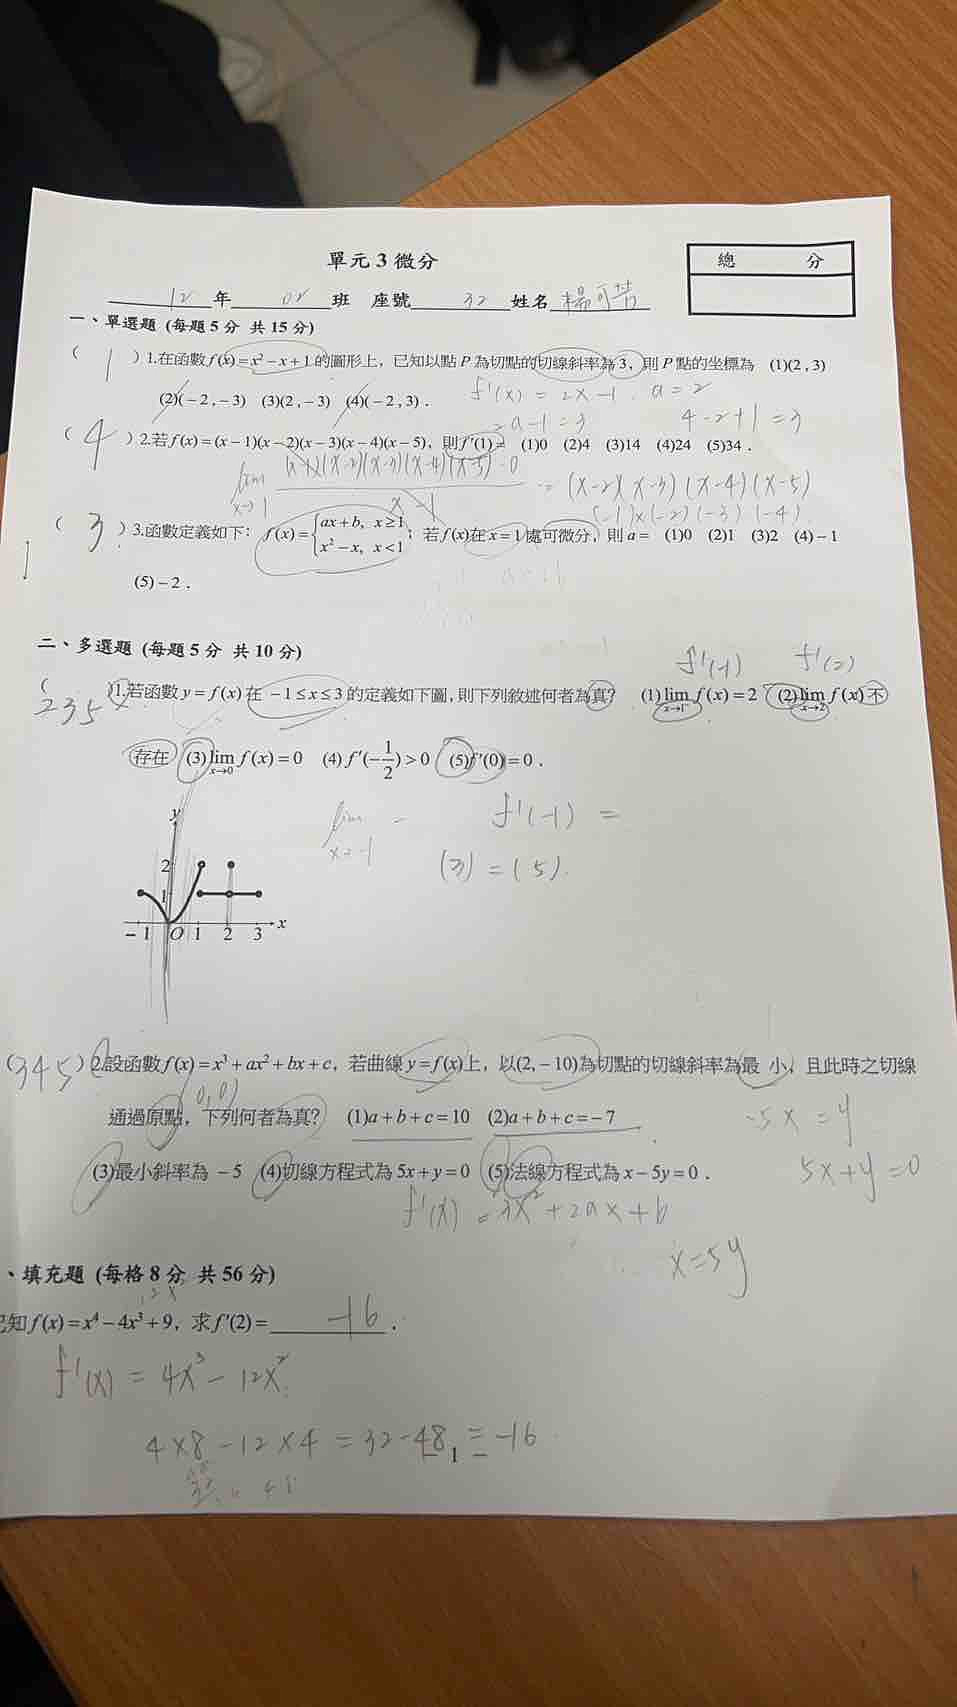 單元 3 微分
總 分
12 年 02 班 座號 32 姓名 楊可
一、單選題 (每題 5 分 共 15 分)
( 1 ) 1.在函數 f(x) = x² − x + 1 的圖形上，已知以點 P 為切點的切線斜率為 3，則 P 點的坐標為 (1)(2 , 3)
(2)(−2 , −3) (3)(2 , −3) (4)(−2 , 3) .
f'(x) = 2x − 1 . a = 2
2a − 1 = 3 4 − 2 + 1 = 3
( 4 ) 2.若 f(x) = (x − 1)(x − 2)(x − 3)(x − 4)(x − 5)，則 f′(1) = (1)0 (2)4 (3)14 (4)24 (5)34 .
lim x→1 (x−1)(x−2)(x−3)(x−4)(x−5) − 0 / x − 1 = (x−2)(x−3)(x−4)(x−5)
(−1)×(−2)(−3)(−4)
( 3 ) 3.函數定義如下： f(x) = { ax + b, x ≥ 1 ; x² − x, x < 1 ；若 f(x) 在 x = 1 處可微分，則 a = (1)0 (2)1 (3)2 (4) − 1
(5) − 2 .
二、多選題 (每題 5 分 共 10 分)
f'(-1) f'(2)
( 235 ) 1.若函數 y = f(x) 在 −1 ≤ x ≤ 3 的定義如下圖，則下列敘述何者為真? (1) lim x→1⁻ f(x) = 2 (2) lim x→2 f(x) 不
存在 (3) lim x→0 f(x) = 0 (4) f′(−1/2) > 0 (5) f′(0) = 0 .
lim x→-1 = f'(−1) =
(3) = (5).
y
2
1
− 1 O 1 2 3 x
( 345 ) 2.設函數 f(x) = x³ + ax² + bx + c，若曲線 y = f(x) 上，以(2, − 10)為切點的切線斜率為最 小，且此時之切線
(0,0)
通過原點，下列何者為真? (1) a + b + c = 10 (2) a + b + c = − 7
−5x = y
(3)最小斜率為 − 5 (4)切線方程式為 5x + y = 0 (5)法線方程式為 x − 5y = 0 .
5x + y = 0
f'(x) = 3x² + 2ax + b
x = 5y
、填充題 (每格 8 分 共 56 分)
12x²
已知 f(x) = x⁴ − 4x³ + 9，求 f′(2) = −16 .
f'(x) = 4x³ − 12x²
4×8 − 12×4 = 32 − 48 = −16
− 1 −